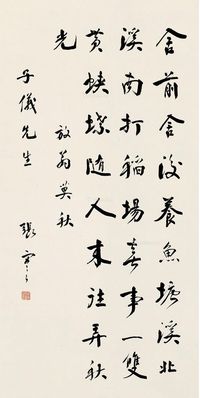 舍前舍後養魚塘溪北
溪南打稻場喜事一雙
黃蛺蝶隨人來往弄秋
光 放翁莫秋
子儀先生 張